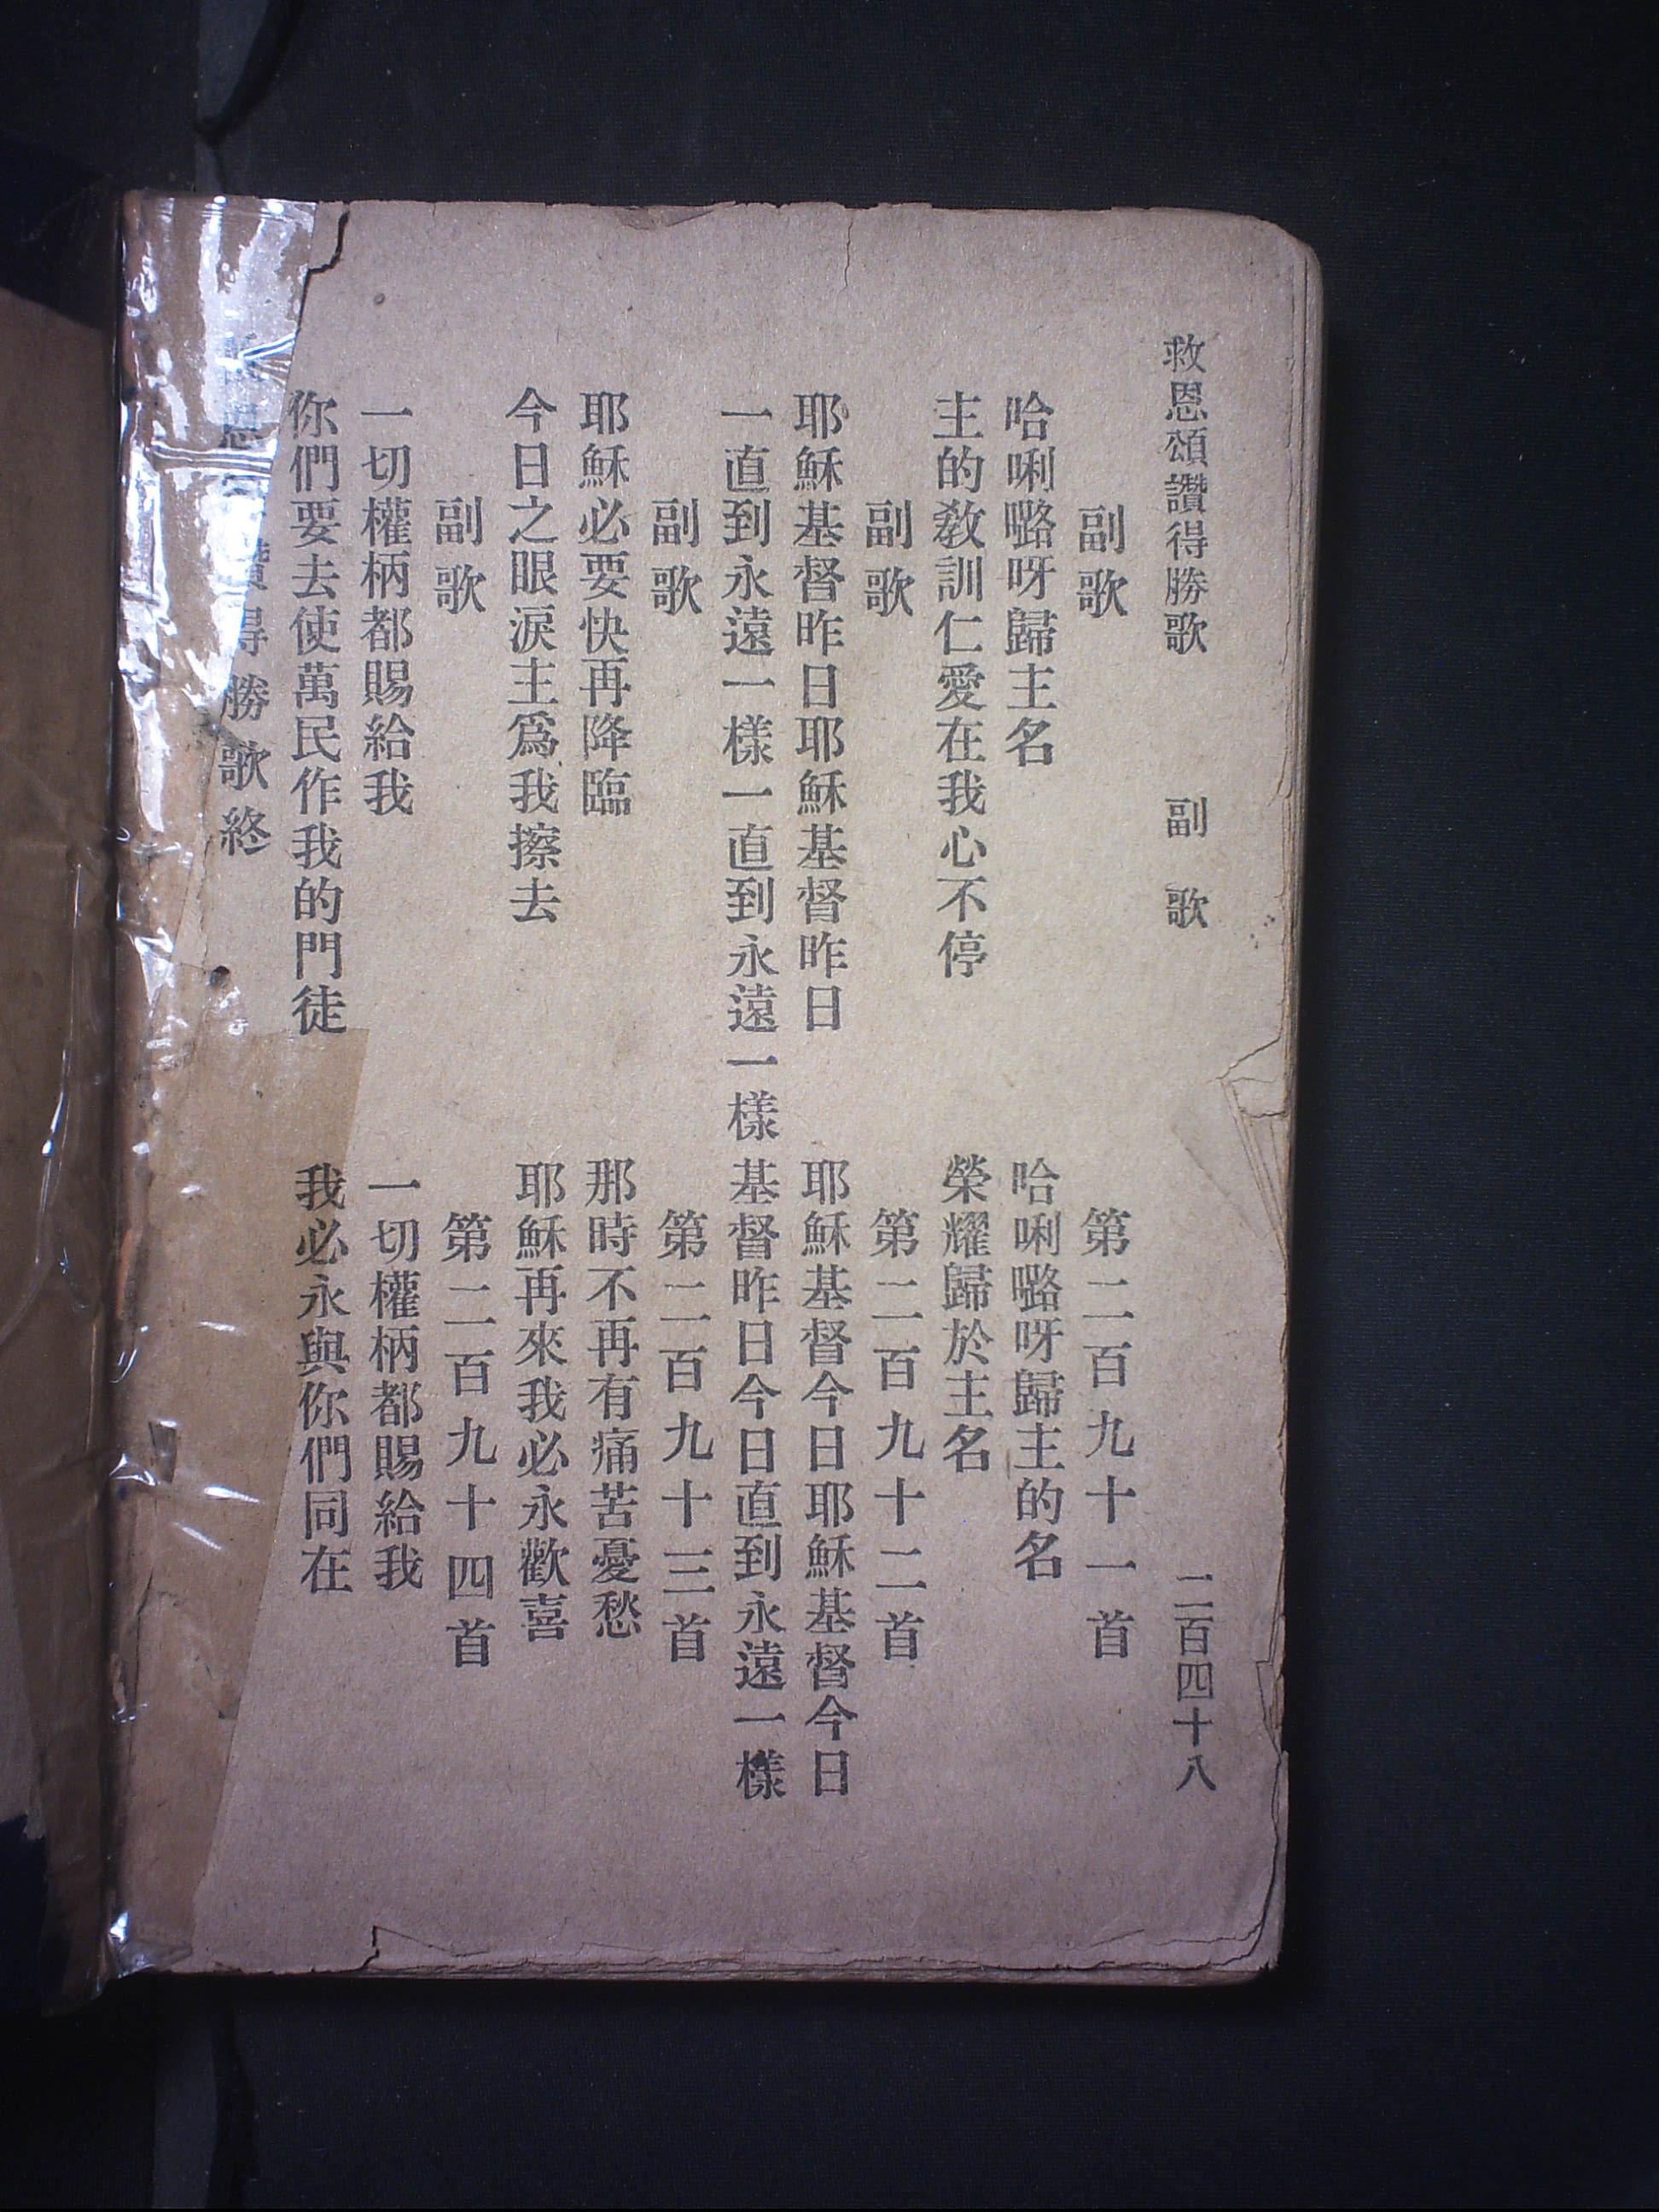 救恩頌讚得勝歌 副歌 二百四十八
副歌 第二百九十一首
哈唎嘧呀歸主名 哈唎嘧呀歸主的名
主的教訓仁愛在我心不停 榮耀歸於主名
副歌 第二百九十二首
耶穌基督昨日耶穌基督昨日 耶穌基督今日耶穌基督今日
一直到永遠一樣一直到永遠一樣 基督昨日今日直到永遠一樣
副歌 第二百九十三首
耶穌必要快再降臨 那時不再有痛苦憂愁
今日之眼淚主爲我擦去 耶穌再來我必永歡喜
副歌 第二百九十四首
一切權柄都賜給我 一切權柄都賜給我
你們要去使萬民作我的門徒 我必永與你們同在
恩讚得勝歌終